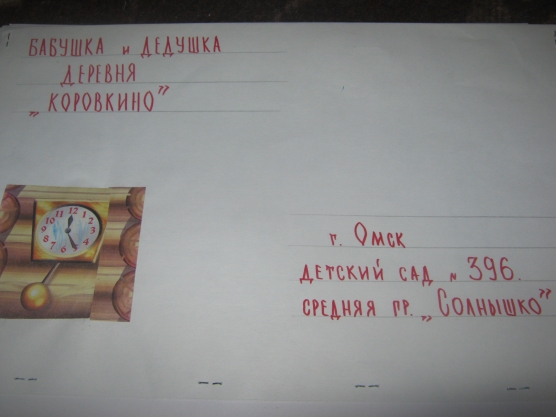 БАБУШКА и ДЕДУШКА
ДЕРЕВНЯ
„КОРОВКИНО”
12
1
2
3
4
5
6
7
8
9
10
11
г. Омск
ДЕТСКИЙ САД № 396.
СРЕДНЯЯ ГР. „Солнышко”